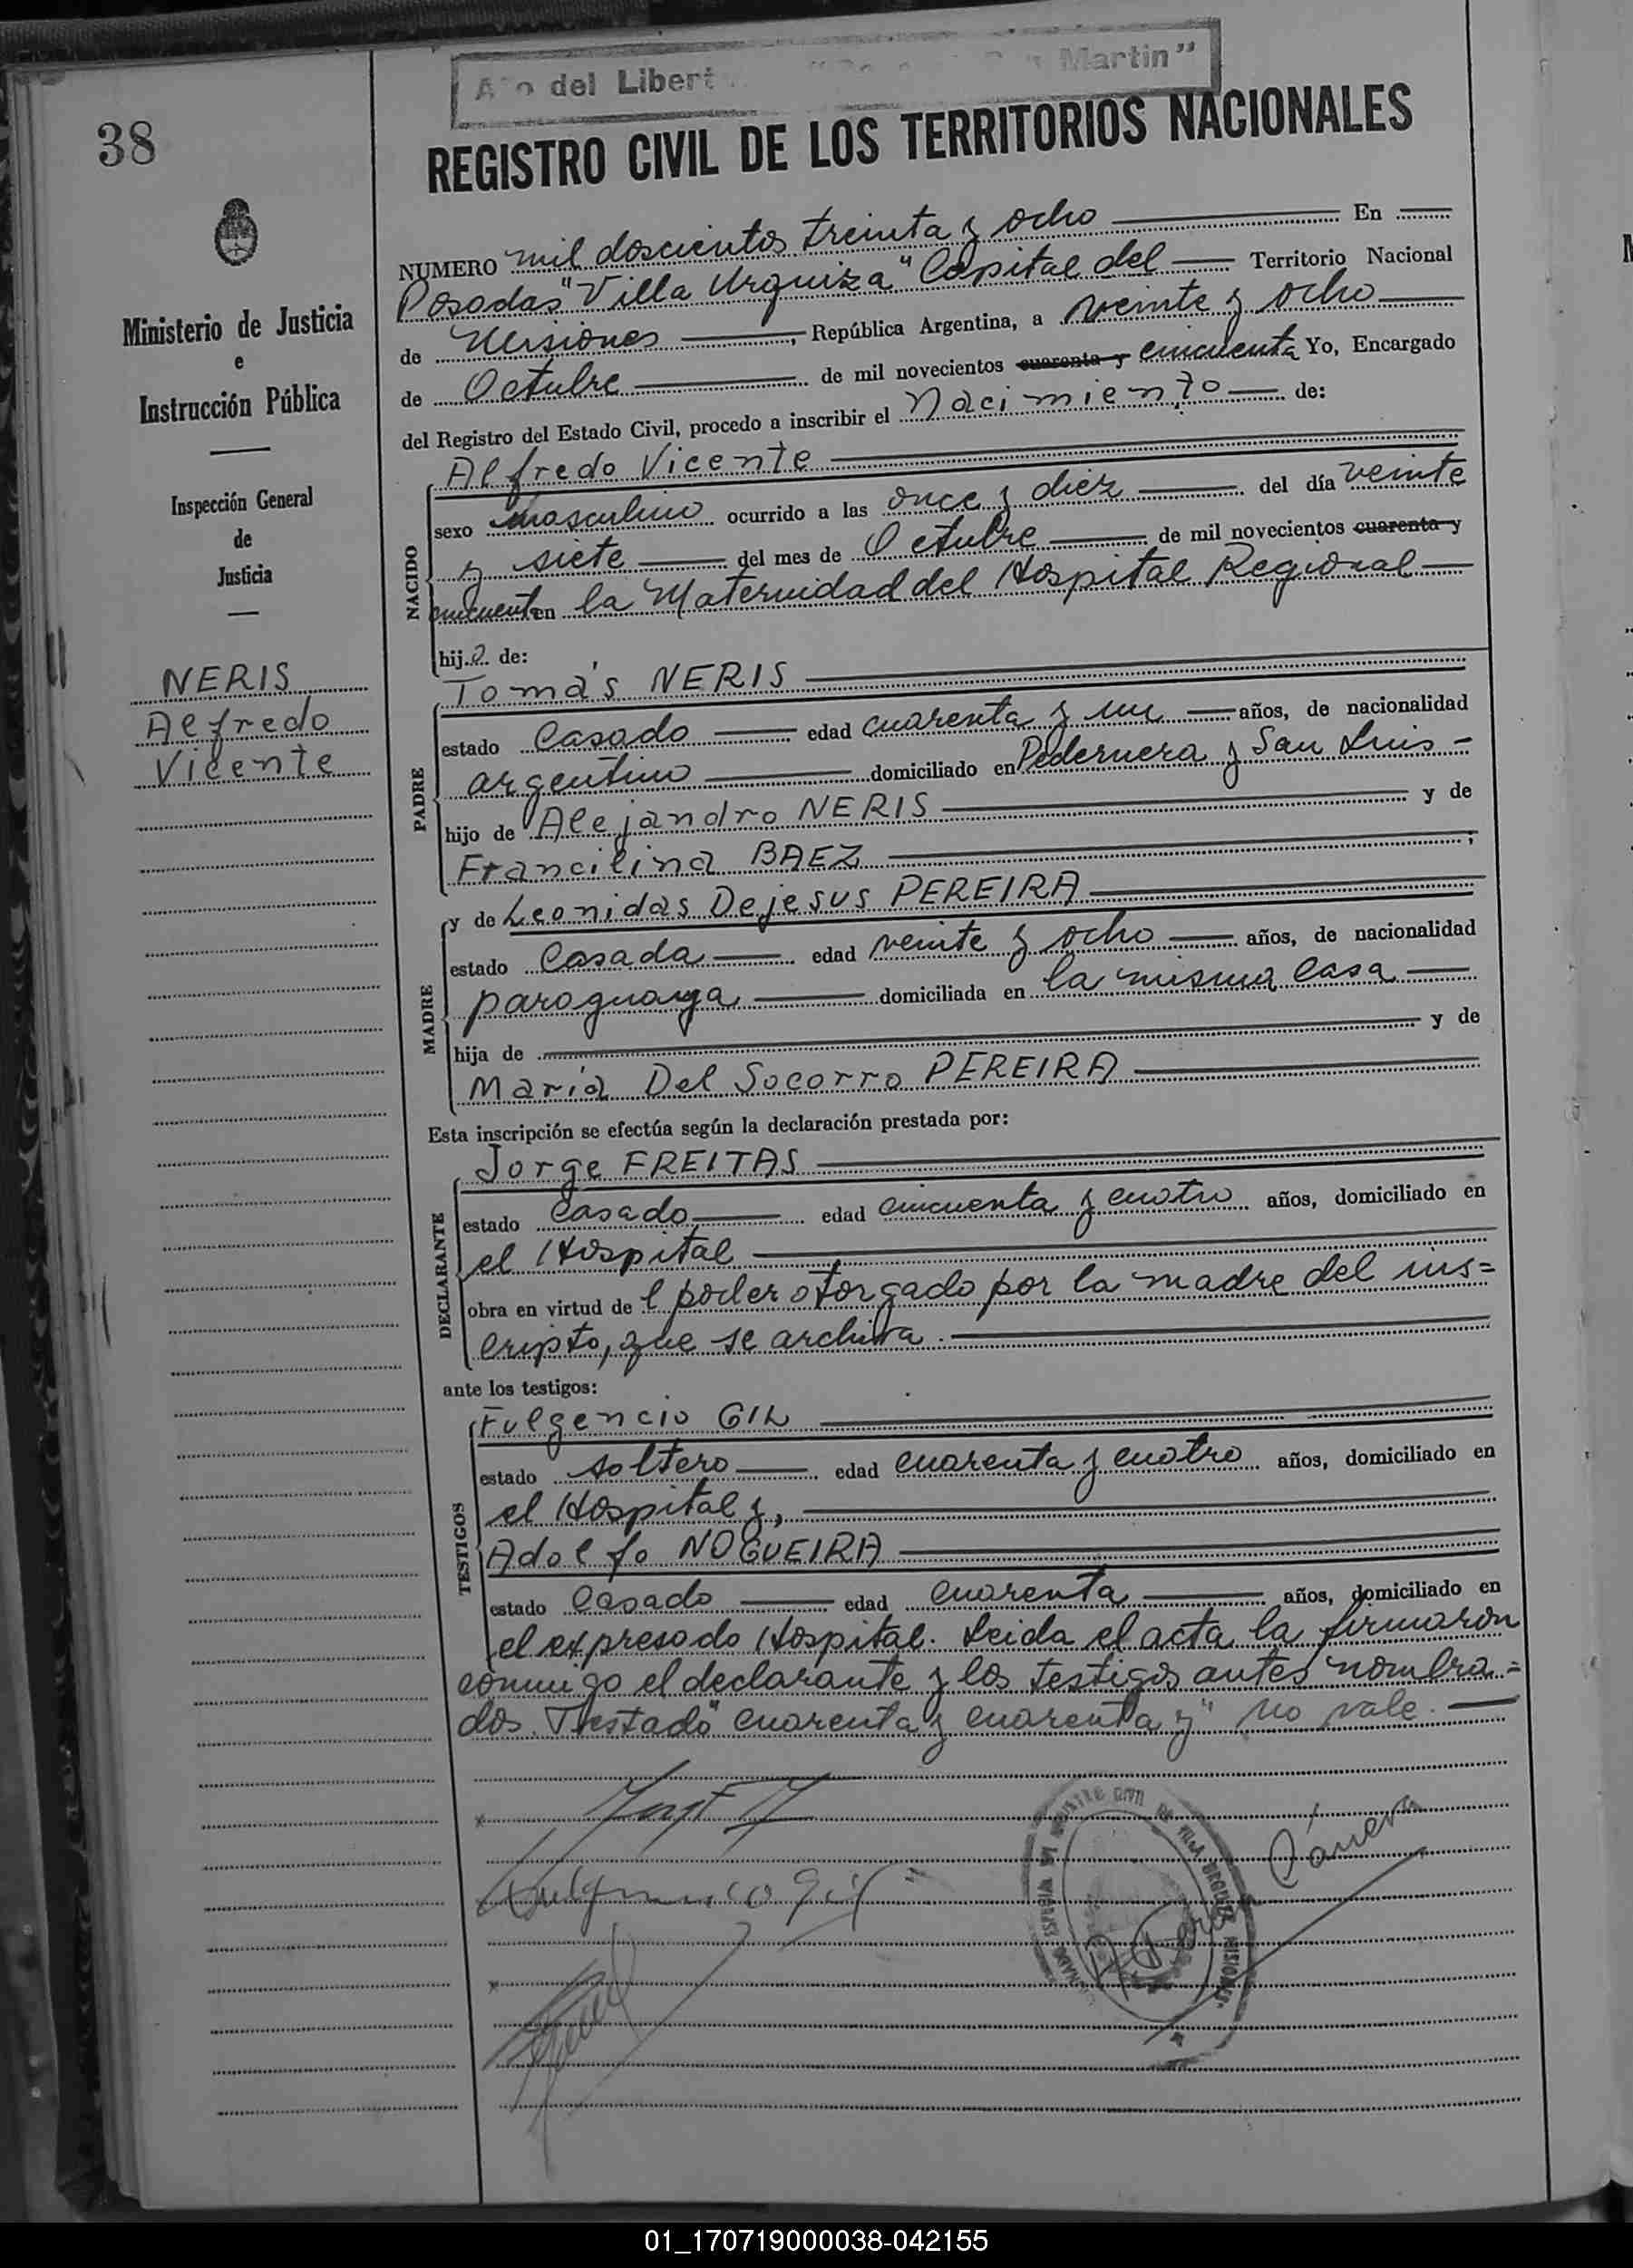 Año del Libert Martin"
38
REGISTRO CIVIL DE LOS TERRITORIOS NACIONALES
NUMERO mil doscientos treinta y ocho En
Posadas "Villa Urquiza" Capital del Territorio Nacional
de Misiones, República Argentina, a veinte y ocho
de Octubre de mil novecientos cuarenta y cincuenta Yo, Encargado
del Registro del Estado Civil, procedo a inscribir el Nacimiento de:
Ministerio de Justicia
e
Instrucción Pública
Inspección General
de
Justicia
NERIS
Alfredo
Vicente
NACIDO
Alfredo Vicente
sexo masculino ocurrido a las once y diez del día veinte
y siete del mes de Octubre de mil novecientos cuarenta y
cincuenta en la Maternidad del Hospital Regional
hijo de:
PADRE
Tomás NERIS
estado Casado edad cuarenta y un años, de nacionalidad
argentino domiciliado en Pedernera y San Luis-
hijo de Alejandro NERIS y de
Francilina BAEZ ;
MADRE
y de Leonidas Dejesus PEREIRA
estado Casada edad veinte y ocho años, de nacionalidad
paraguaya domiciliada en la misma casa
hija de y de
María Del Socorro PEREIRA
Esta inscripción se efectúa según la declaración prestada por:
DECLARANTE
Jorge FREITAS
estado Casado edad cincuenta y cuatro años, domiciliado en
el Hospital
obra en virtud del poder otorgado por la madre del ins=
cripto, que se archiva.
ante los testigos:
TESTIGOS
Fulgencio GIL
estado soltero edad cuarenta y cuatro años, domiciliado en
el Hospital y,
Adolfo NOGUEIRA
estado Casado edad cuarenta años, domiciliado en
el expresado Hospital. Leida el acta la firmaron
conmigo el declarante y los testigos antes nombra=
dos. Testado "cuarenta y cuarenta y" no vale.
Fulgencio Gil
01_170719000038-042155